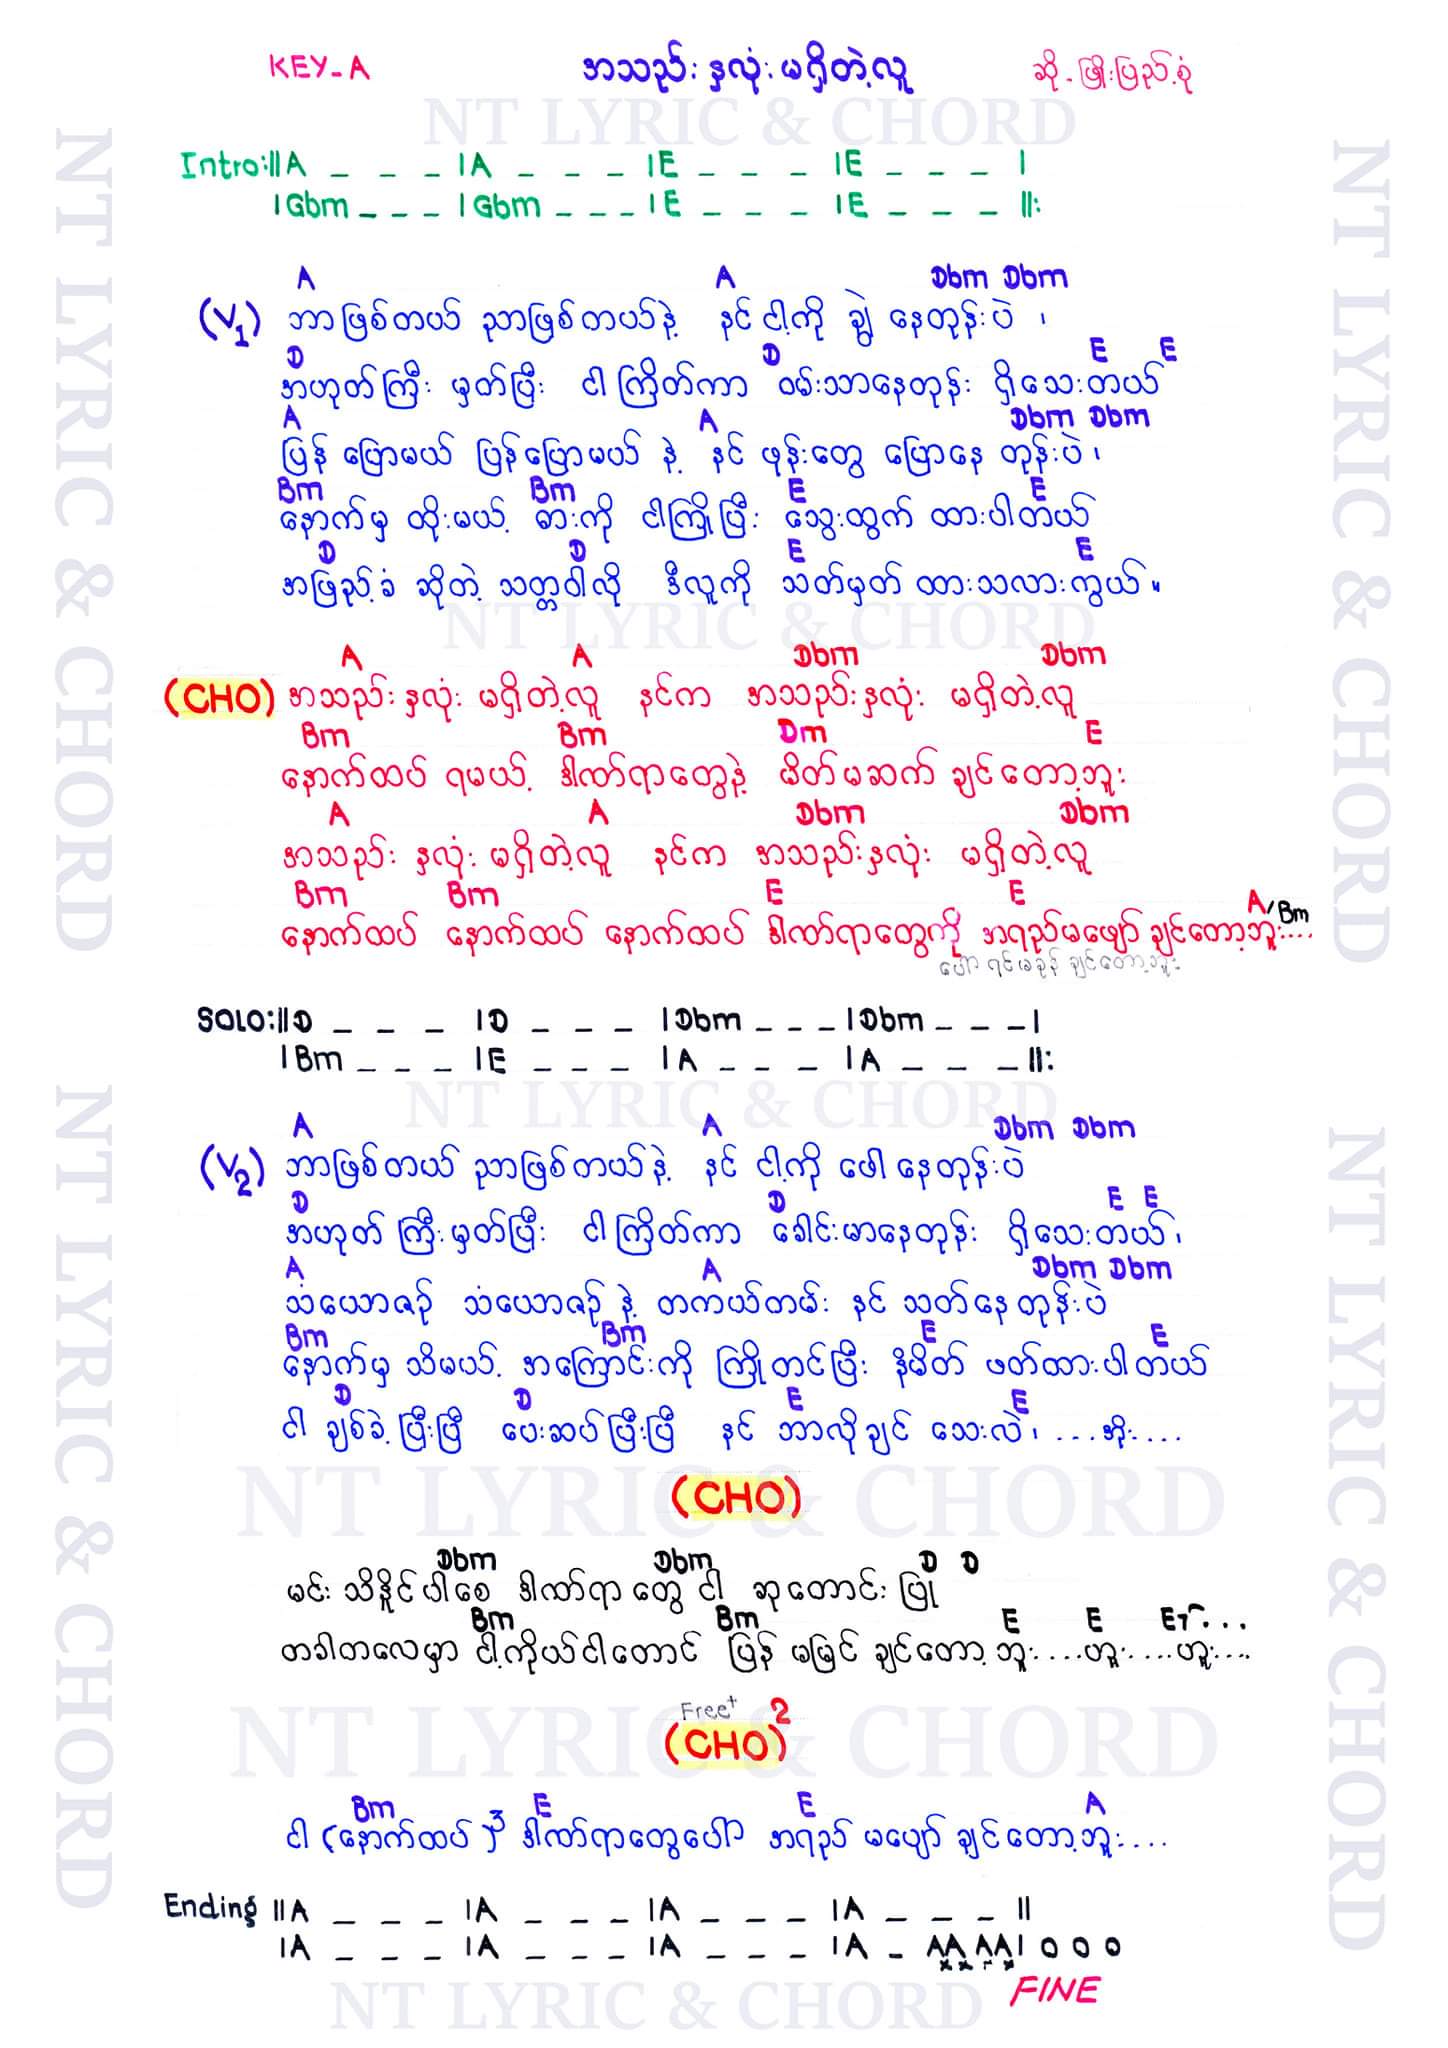 KEY-A အသည်းနှလုံးမရှိတဲ့လူ ဆို-ဖြိုးပြည့်စုံ
NT LYRIC & CHORD
Intro:||A _ _ _ |A _ _ _ |E _ _ _ |E _ _ _ |
|Gbm _ _ _ |Gbm _ _ _ |E _ _ _ |E _ _ _ ||:
A A Dbm Dbm
(V1) ဘာဖြစ်တယ် ညာဖြစ်တယ်နဲ့ နင် ငါ့ကို ချွဲ နေတုန်းပဲ ၊
D D E E
အဟုတ်ကြီး မှတ်ပြီး ငါ ကြိတ်ကာ ဝမ်းသာနေတုန်း ရှိသေးတယ်
A A Dbm Dbm
ပြန် ပြောမယ် ပြန်ပြောမယ် နဲ့ နင် ဖုန်းတွေ ပြောနေ တုန်းပဲ၊
Bm Bm E E
နောက်မှ ထိုးမယ့် ဓားကို ငါကြိုပြီး သွေးထွက် ထားပါတယ်
D D E E
အဖြည့်ခံ ဆိုတဲ့ သတ္တဝါလို ဒီလူကို သတ်မှတ် ထားသလားကွယ်။
NT LYRIC & CHORD
A A Dbm Dbm
(CHO) အသည်းနှလုံး မရှိတဲ့လူ နင်က အသည်းနှလုံး မရှိတဲ့လူ
Bm Bm Dm E
နောက်ထပ် ရမယ့် ဒါဏ်ရာတွေနဲ့ မိတ်မဆက် ချင်တော့ဘူး
A A Dbm Dbm
အသည်း နှလုံး မရှိတဲ့လူ နင်က အသည်းနှလုံး မရှိတဲ့လူ
Bm Bm E E A/Bm
နောက်ထပ် နောက်ထပ် နောက်ထပ် ဒါဏ်ရာတွေကို အရည်မဖျော် ချင်တော့ဘူး....
ပေါ် ရင်မခုန် ချင်တော့ဘူး
SOLO:||D _ _ _ |D _ _ _ |Dbm _ _ _ |Dbm _ _ _ |
|Bm _ _ _ |E _ _ _ |A _ _ _ |A _ _ _ ||:
NT LYRIC & CHORD
A A Dbm Dbm
(V2) ဘာဖြစ်တယ် ညာဖြစ်တယ်နဲ့ နင် ငါ့ကို ဖေါ နေတုန်းပဲ
D D E E
အဟုတ် ကြီးမှတ်ပြီး ငါ ကြိတ်ကာ ခေါင်းမာနေတုန်း ရှိသေးတယ်၊
A A Dbm Dbm
သံယောဇဉ် သံယောဇဉ် နဲ့ တကယ်တမ်း နင် သတ်နေတုန်းပဲ
Bm Bm E E
နောက်မှ သိမယ့် အကြောင်းကို ကြိုတင်ပြီး နိမိတ် ဖတ်ထားပါတယ်
D D E E
ငါ ချစ်ခဲ့ပြီးပြီ ပေးဆပ်ပြီးပြီ နင် ဘာလိုချင် သေးလဲ၊ ...အိုး....
NT LYRIC & CHORD
(CHO)
Dbm Dbm D D
မင်း သိနိူင်ပါစေ ဒါဏ်ရာတွေ ငါ ဆုတောင်းပြု
Bm Bm E E E7...
တခါတလေမှာ ငါ့ကိုယ်ငါတောင် ပြန် မမြင် ချင်တော့ ဘူး....ဟူး....ဟူး....
Free+
(CHO)2
NT LYRIC & CHORD
Bm E E A
ငါ (နောက်ထပ်)3 ဒါဏ်ရာတွေပေါ် အရည် မပျော် ချင်တော့ဘူး....
Ending ||A _ _ _ |A _ _ _ |A _ _ _ |A _ _ _ ||
|A _ _ _ |A _ _ _ |A _ _ _ |A _ AA AA| o o o
FINE
NT LYRIC & CHORD
NT LYRIC & CHORD
NT LYRIC & CHORD
NT LYRIC & CHORD
NT LYRIC & CHORD